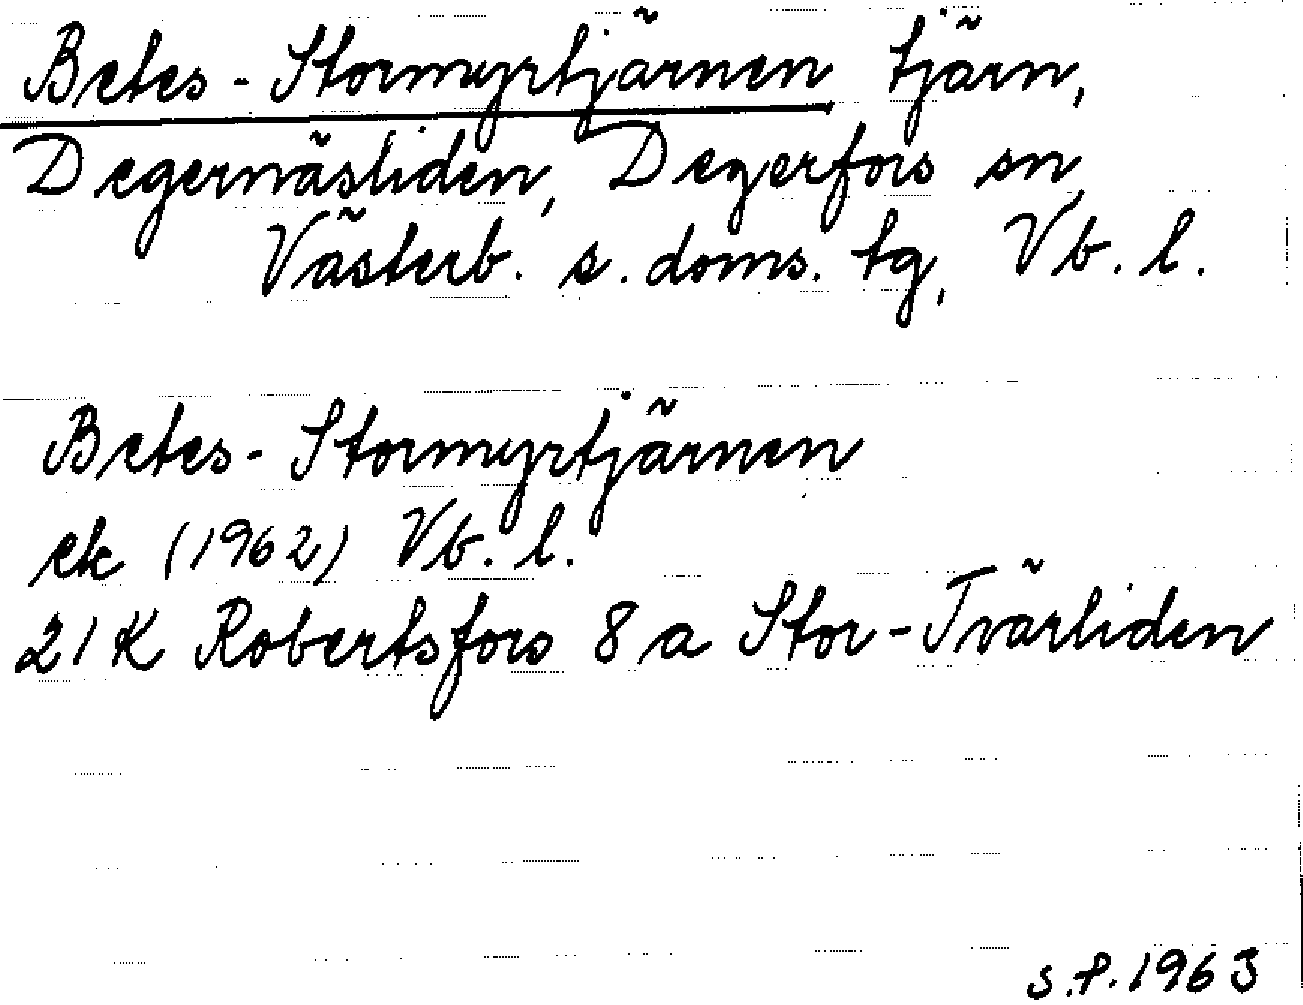 Betes-Stormyrtjärnen tjärn,
Degernäsliden, Degerfors sn,
Västerb. s. doms. tg, Vb. l.
Betes-Stormyrtjärnen
ek (1962) Vb. l.
21 K Robertsfors 8 a Stor-Tvärliden
S.P. 1963